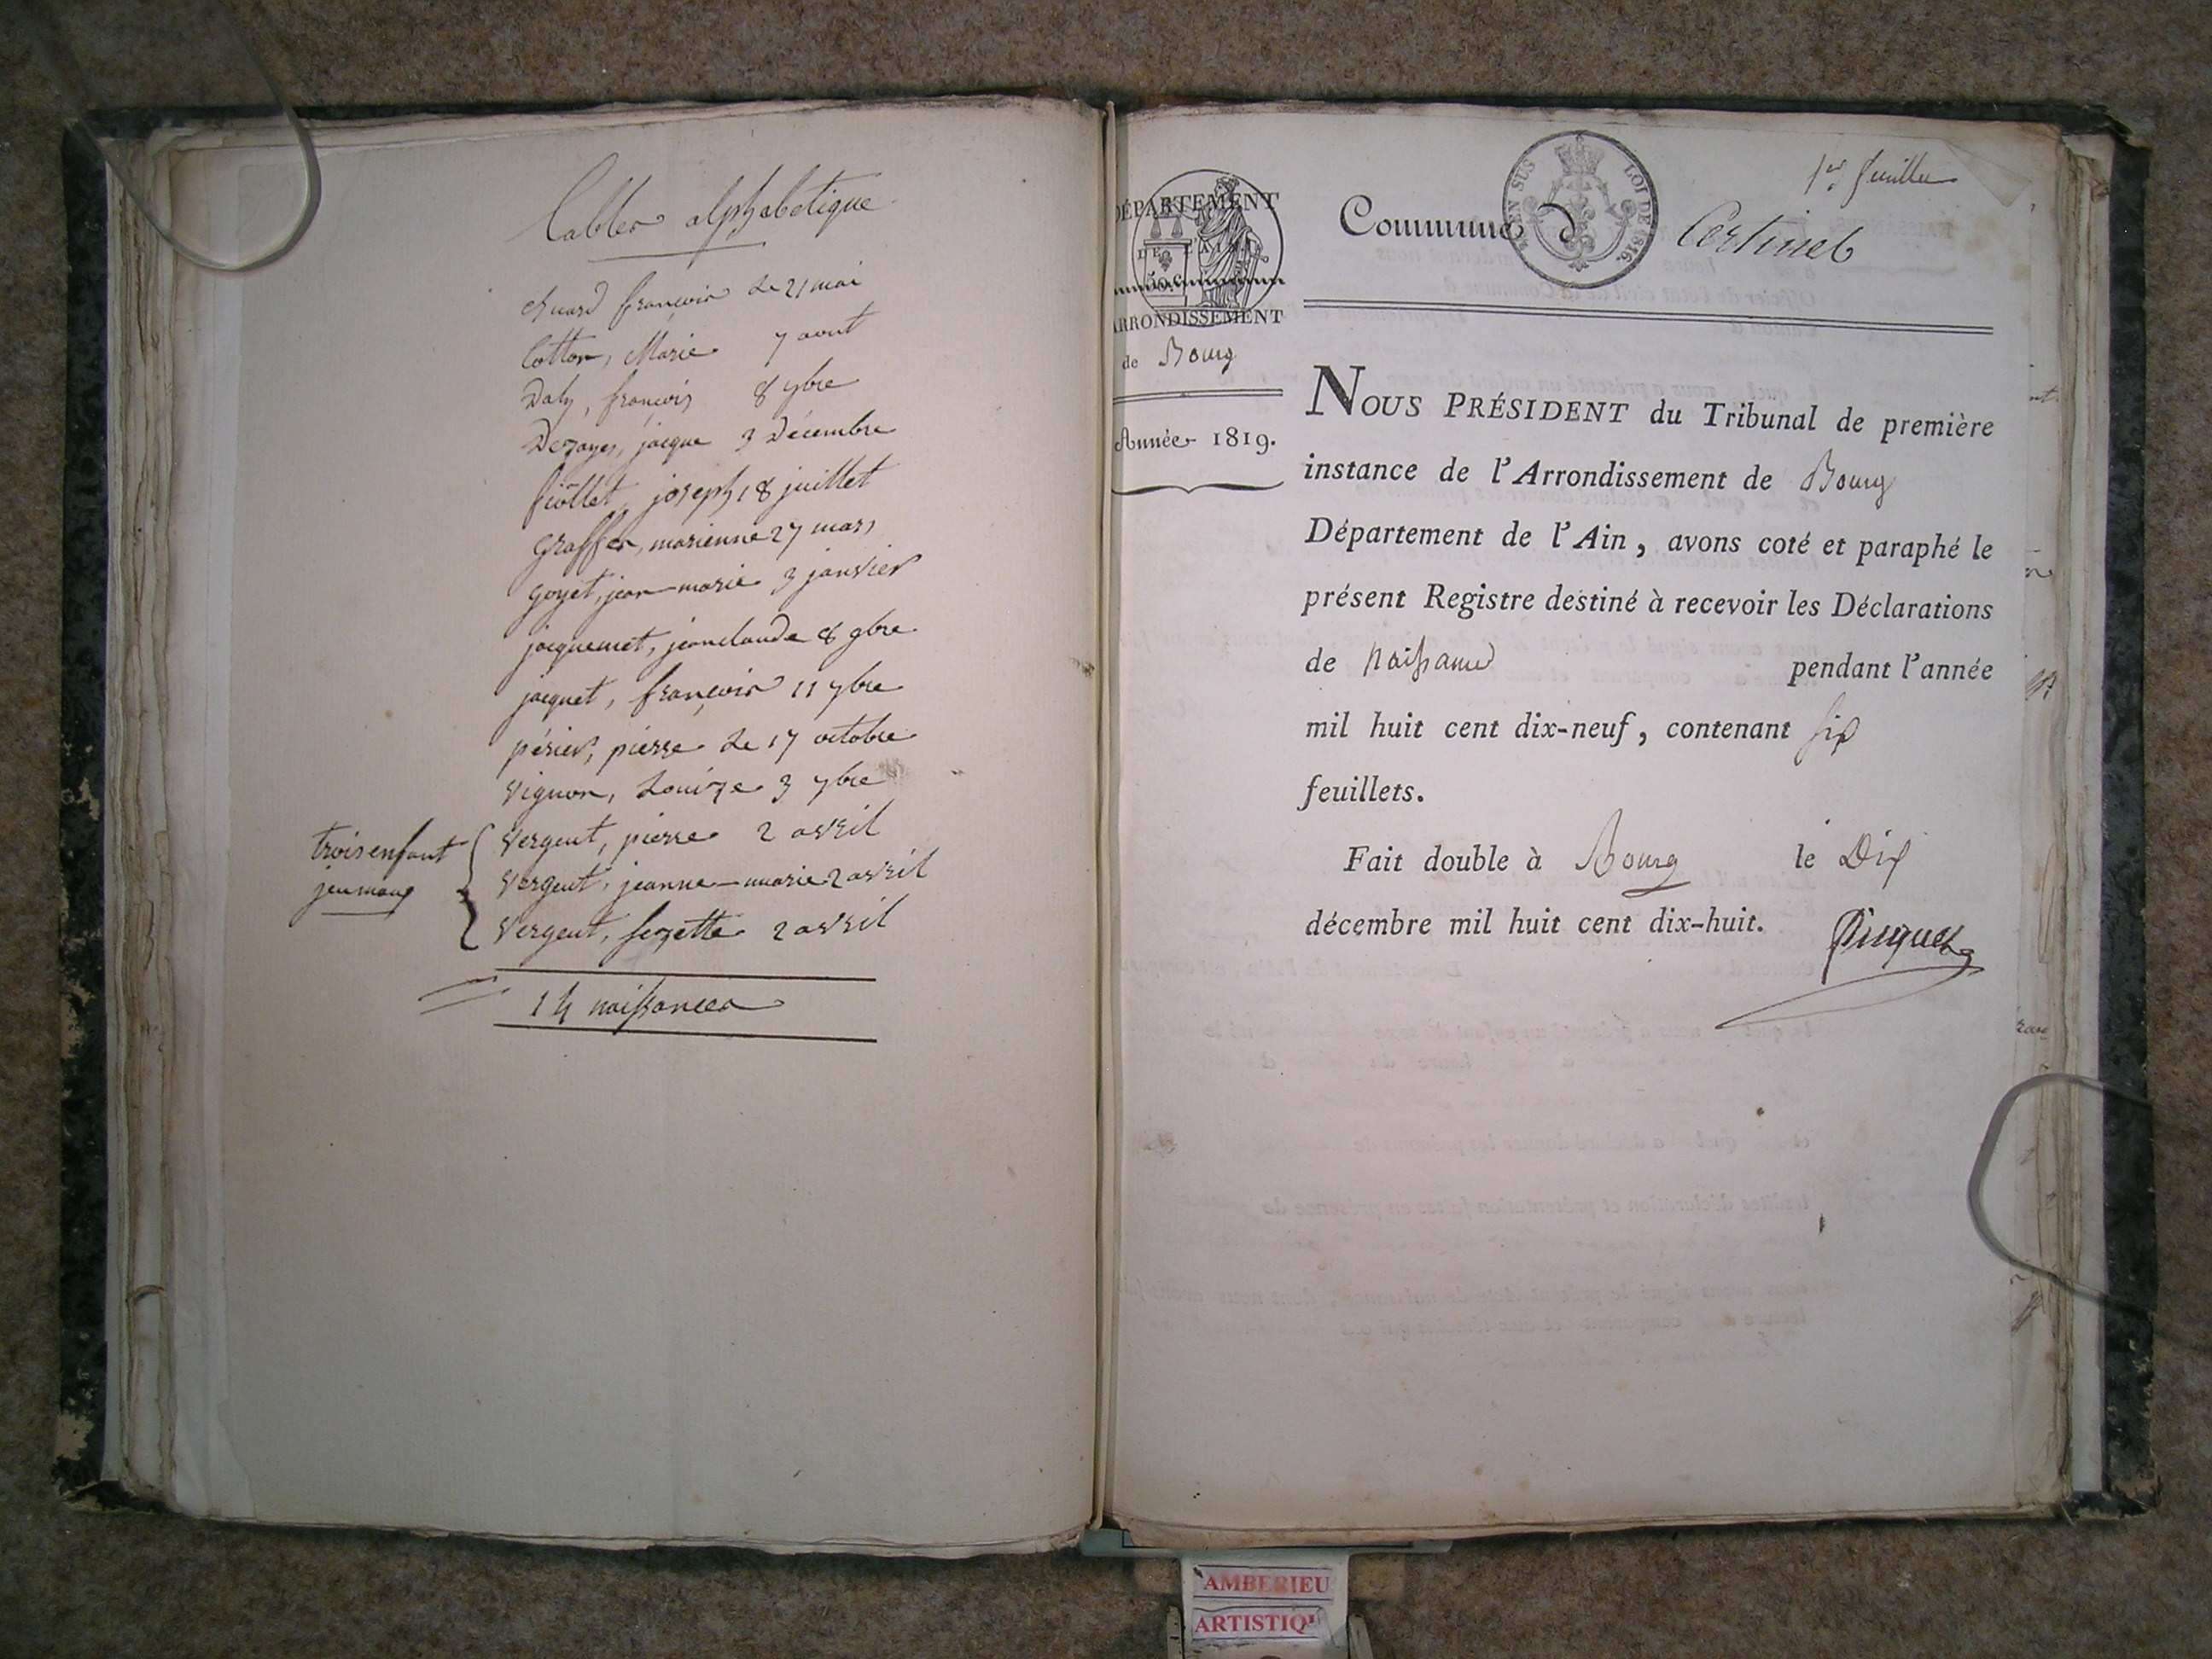 Tables alphabetique
chuard françois le 21 mai
Cotton, Marie 7 aout
Daly, françois 8 7bre
Dezayes, jacque 3 Décembre
fiollet, joseph 18 juillet
graffer, marienne 27 mars
goyet, jean-marie 3 janvier
jacquemet, jeanclaude 8 9bre
jacquet, françois 11 7bre
périer, pierre le 17 octobre
vignon, Louize 3 7bre
vergeut, pierre 2 avril
trois enfant
jeumaux
vergeut, jeanne-marie 2 avril
vergeut, sezette 2 avril
14 naissances
DÉPARTEMENT
DE L'AIN
50 c.
ARRONDISSEMENT
de Bourg
Année 1819.
1er feuillet
EN SUS LOI DE 1816.
Commune de Certines
NOUS PRÉSIDENT du Tribunal de première
instance de l'Arrondissement de Bourg
Département de l'Ain, avons coté et paraphé le
présent Registre destiné à recevoir les Déclarations
de naissance pendant l'année
mil huit cent dix-neuf, contenant six
feuillets.
Fait double à Bourg le Dix
décembre mil huit cent dix-huit.
AMBERIEU
ARTISTIQU